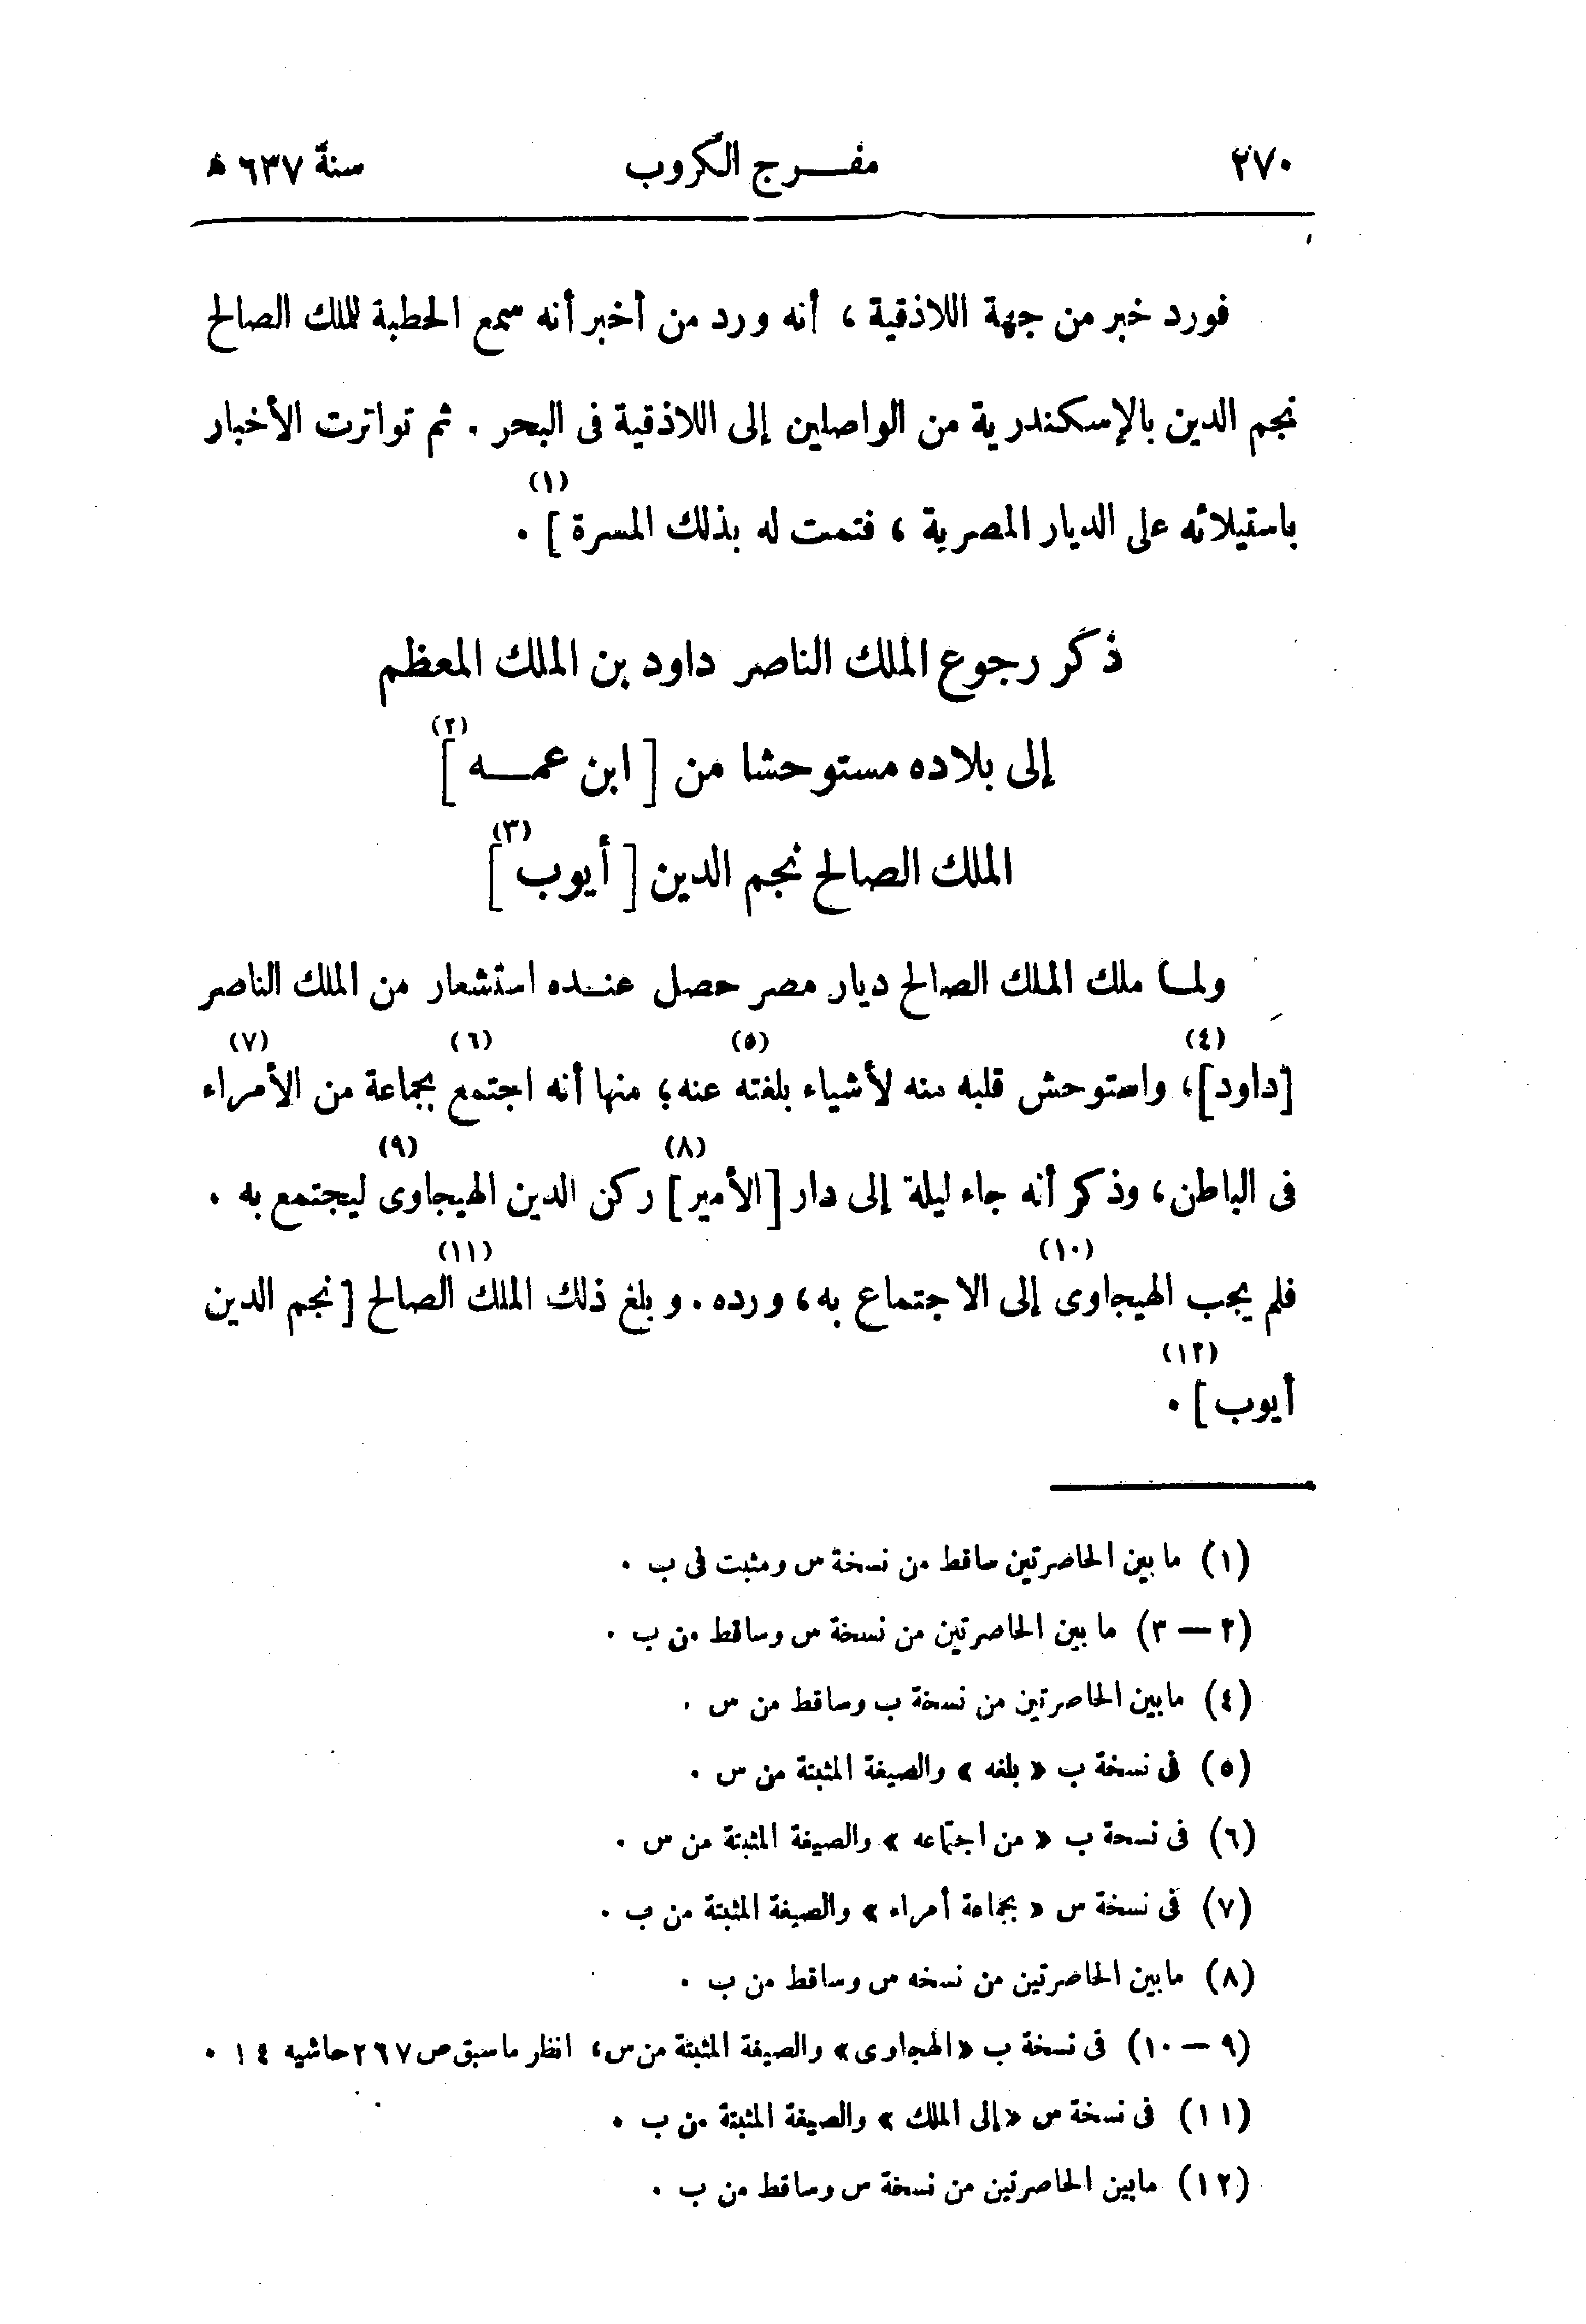 ٢٧٠ مفرج الكروب سنة ٦٣٧ هـ
فورد خبر من جهة اللاذقية ، أنه ورد من أخبر أنه سمع الخطبة للملك الصالح
نجم الدين بالإسكندرية من الواصلين إلى اللاذقية فى البحر . ثم تواترت الأخبار
باستيلائه على الديار المصرية ، فتمت له بذلك المسرة ](١) .
ذكر رجوع الملك الناصر داود بن الملك المعظم
إلى بلاده مستوحشا من [ ابن عمه ](٢)
الملك الصالح نجم الدين [ أيوب ](٣)
ولما ملك الملك الصالح ديار مصر حصل عنده استشعار من الملك الناصر
[داود](٤)، واستوحش قلبه منه لأشياء بلغته(٥) عنه ؛ منها أنه اجتمع(٦) بجماعة من الأمراء(٧)
فى الباطن ، وذكر أنه جاء ليلة إلى دار [الأمير](٨) ركن الدين الهيجاوى(٩) ليجتمع به .
فلم يجب الهيجاوى(١٠) إلى الاجتماع به ، ورده . وبلغ ذلك الملك(١١) الصالح [ نجم الدين
أيوب ](١٢) .
(١) ما بين الحاصرتين ساقط من نسخة س ومثبت فى ب .
(٢ — ٣) ما بين الحاصرتين من نسخة س وساقط من ب .
(٤) مابين الحاصرتين من نسخة ب وساقط من س .
(٥) فى نسخة ب « بلغه » والصيغة المثبتة من س .
(٦) فى نسحة ب « من اجتماعه » والصيغة المثبتة من س .
(٧) فى نسخة س « بجماعة أمراء » والصيغة المثبتة من ب .
(٨) مابين الحاصرتين من نسخه س وساقط من ب .
(٩ — ١٠) فى نسخة ب «الهجاوى» والصيغة المثبتة من س ، انظر ماسبق ص ٢٦٧ حاشيه ١٤ .
(١١) فى نسخة س «إلى الملك » والصيغة المثبتة من ب .
(١٢) مابين الحاصرتين من نسخة س وساقط من ب .